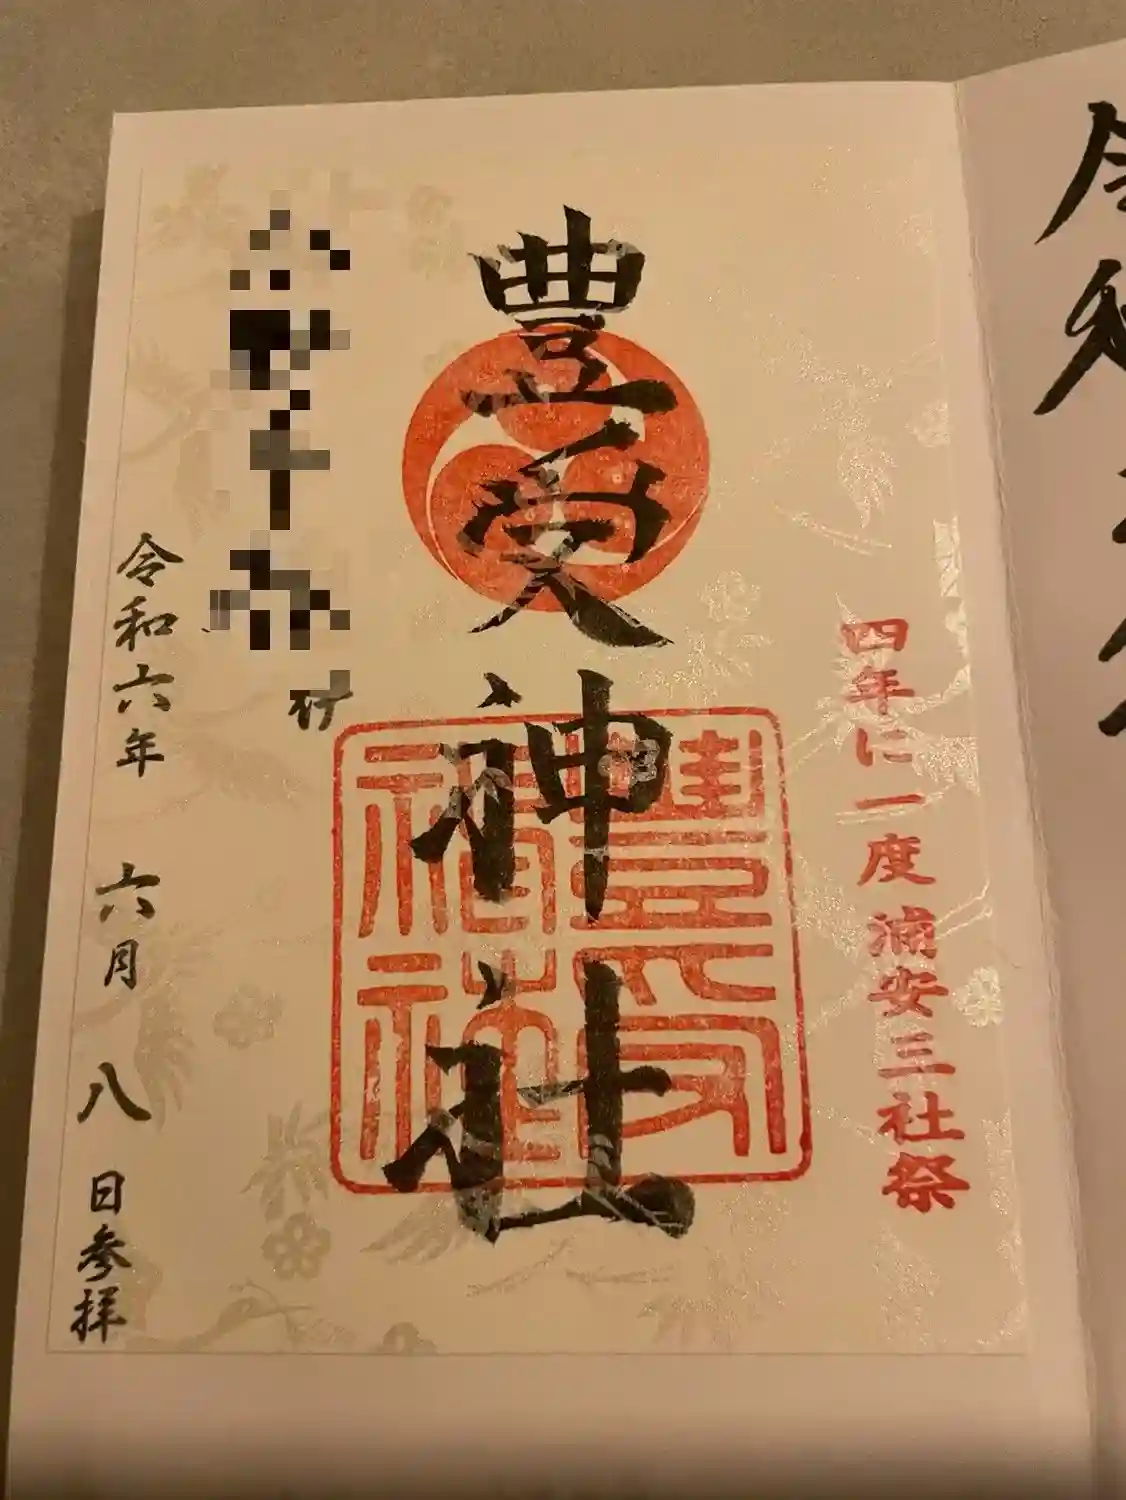 四年に一度 浦安三社祭
豊受神社
豊受
神社
令和六年 六月 八日参拝